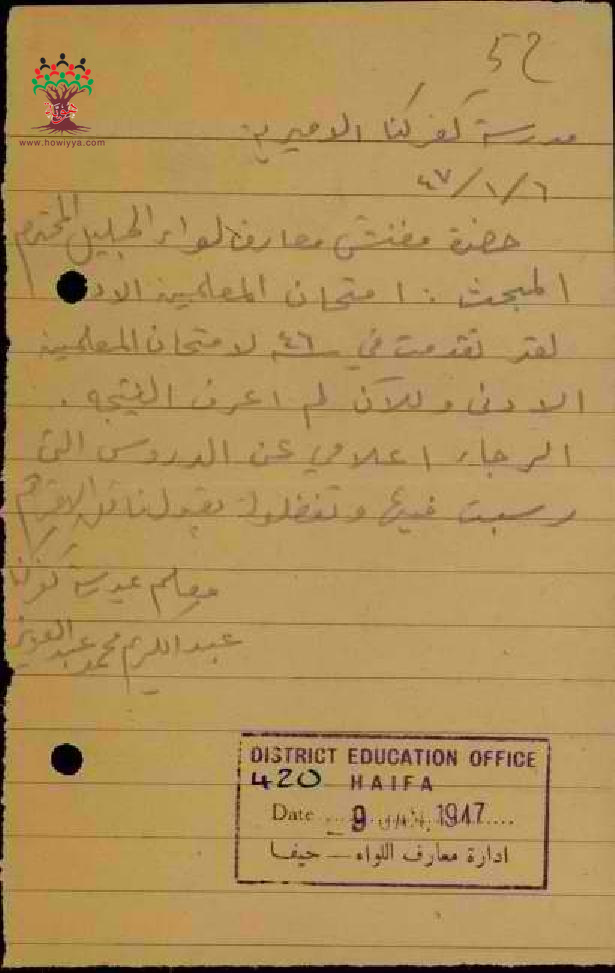 52
www.howiyya.com
مدرسة كفركنا الاميرية
٤٧/١/٦
حضرة مفتش معارف لواء الجليل المحترم
المبحث : امتحان المعلمين الادنى
لقد تقدمت في ٤٦ لامتحان المعلمين
الادنى وللآن لم اعرف النتيجه .
الرجاء اعلامي عن الدروس التي
رسبت فيها وتفضلوا بقبول فائق الاحترام
معلم بمدرسة كفركنا
عبد الكريم محمد عبد العزيز
DISTRICT EDUCATION OFFICE
420 HAIFA
Date ... 9 JAN. 1947 ....
ادارة معارف اللواء — حيفا